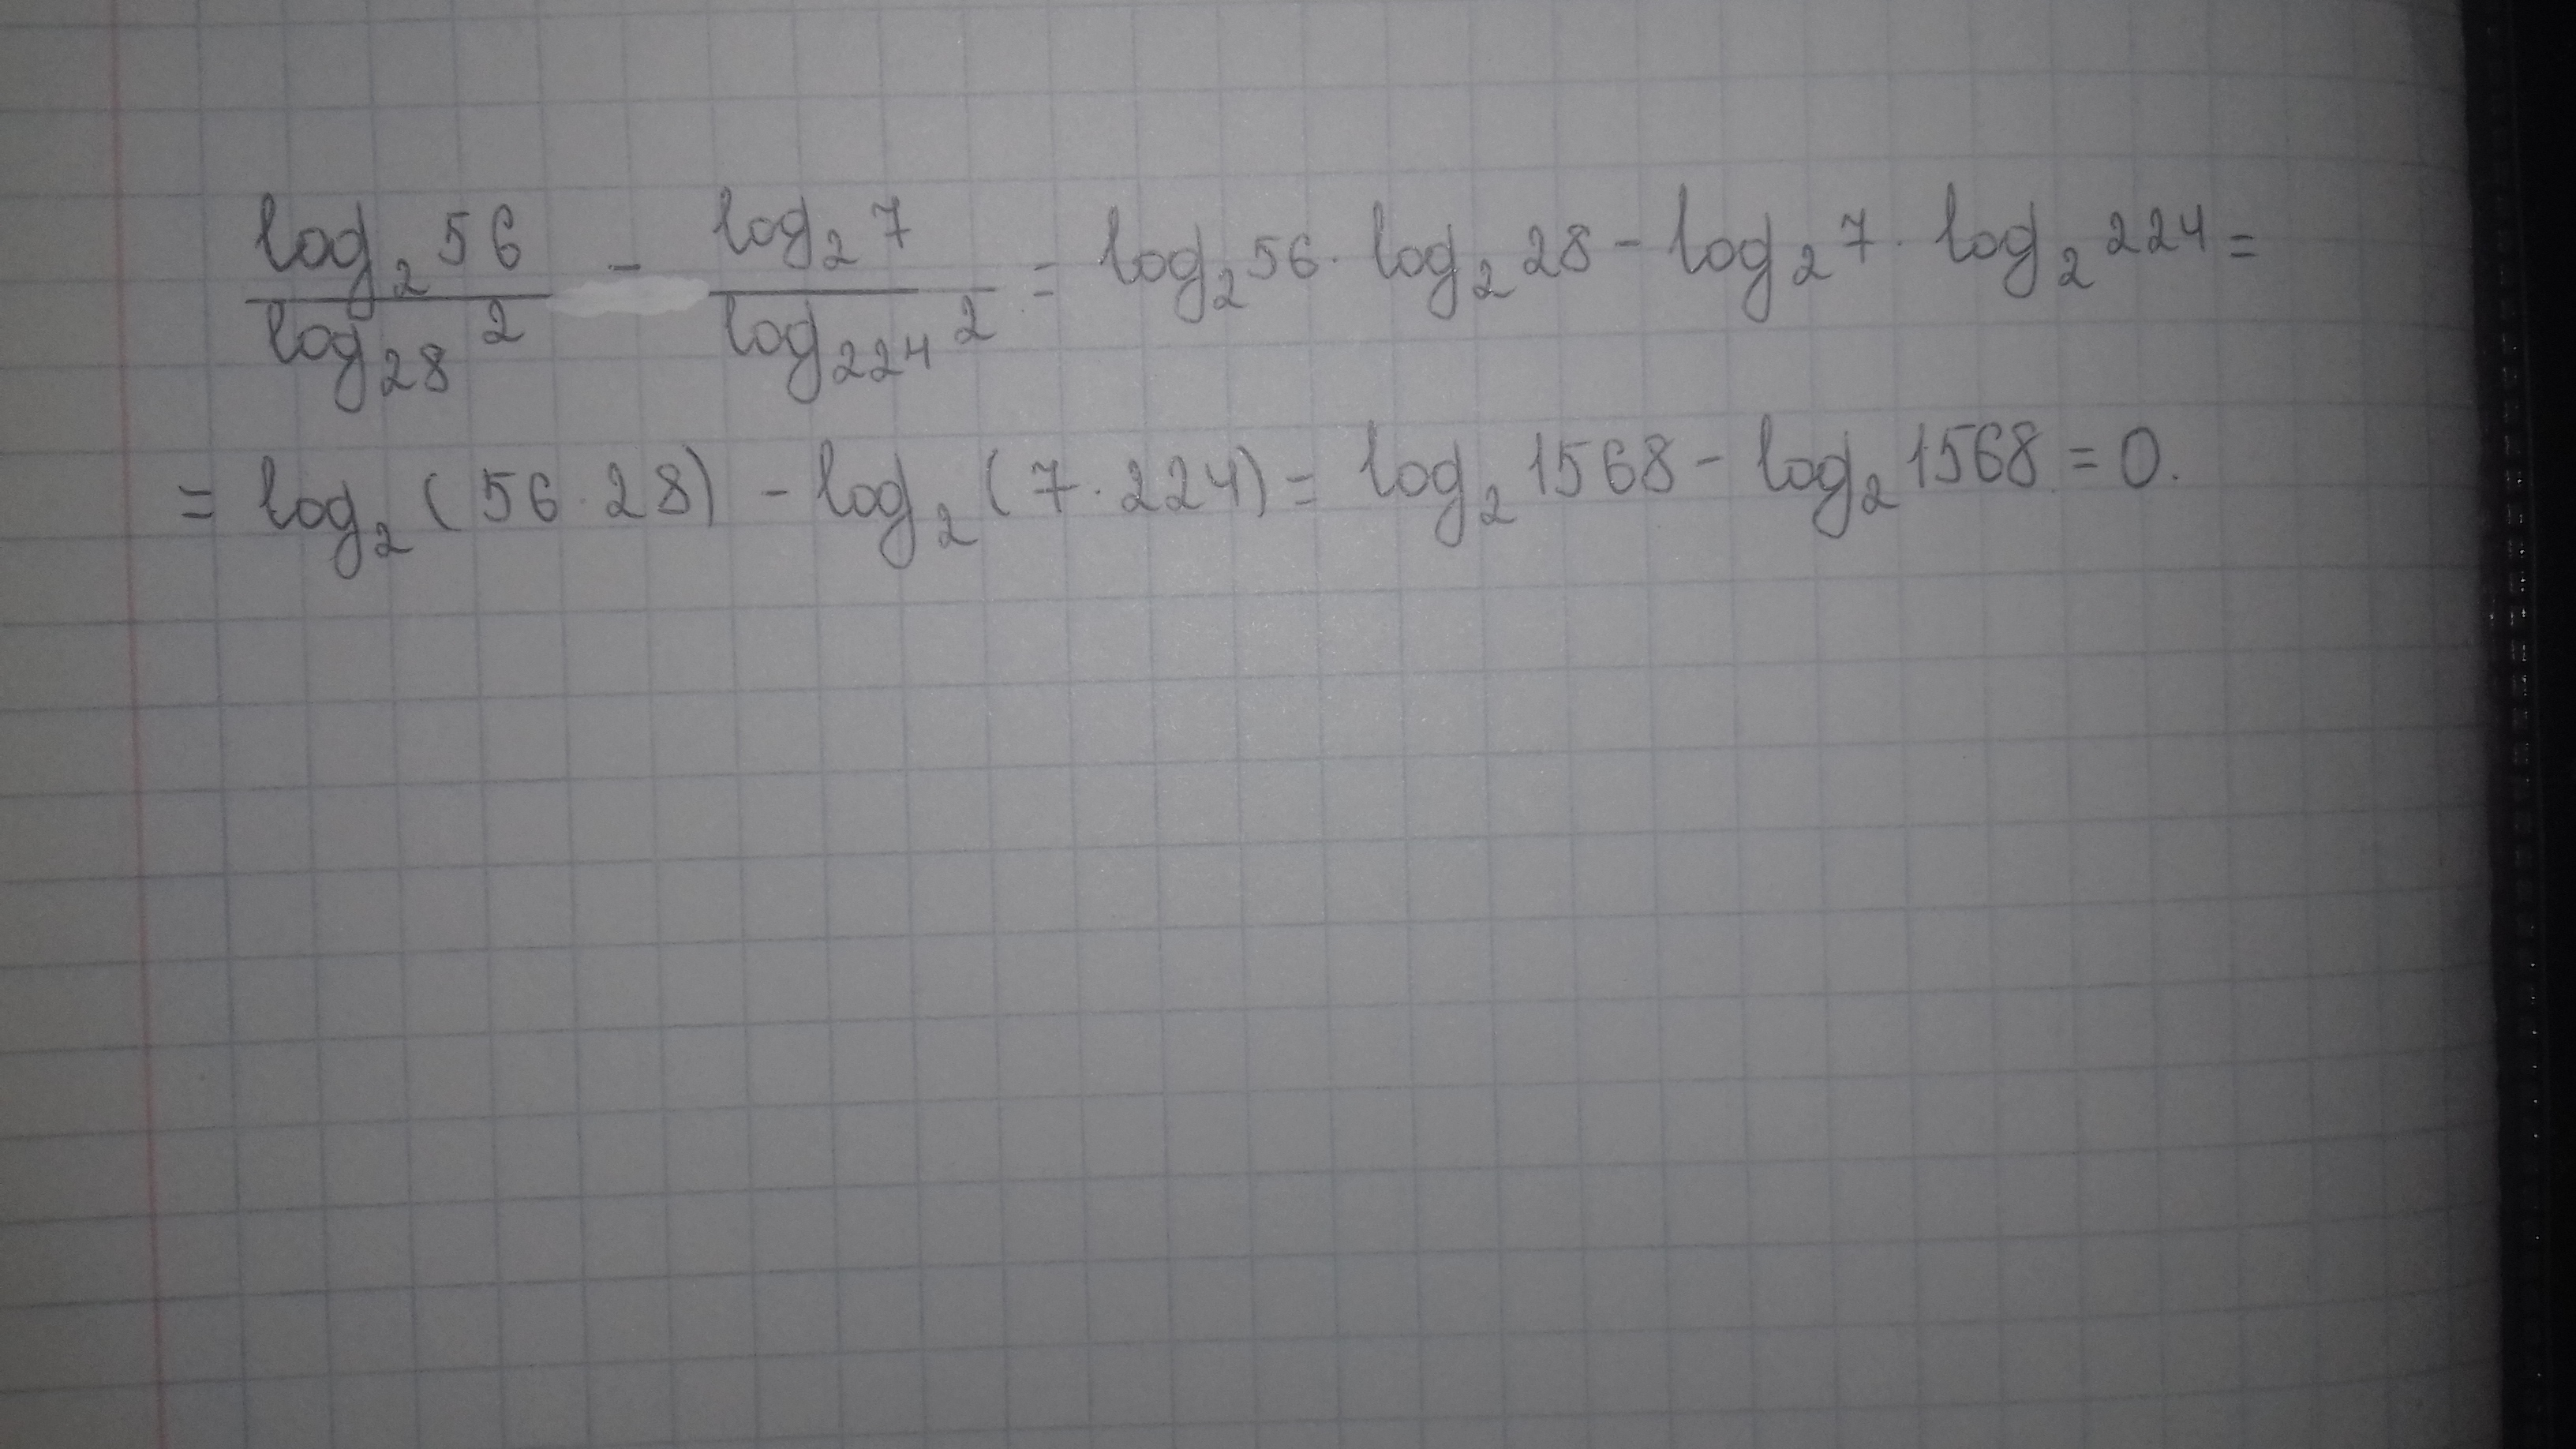 log₂56/log₂₈2 - log₂7/log₂₂₄2 = log₂56 · log₂28 - log₂7 · log₂224 =
= log₂(56·28) - log₂(7·224) = log₂1568 - log₂1568 = 0.